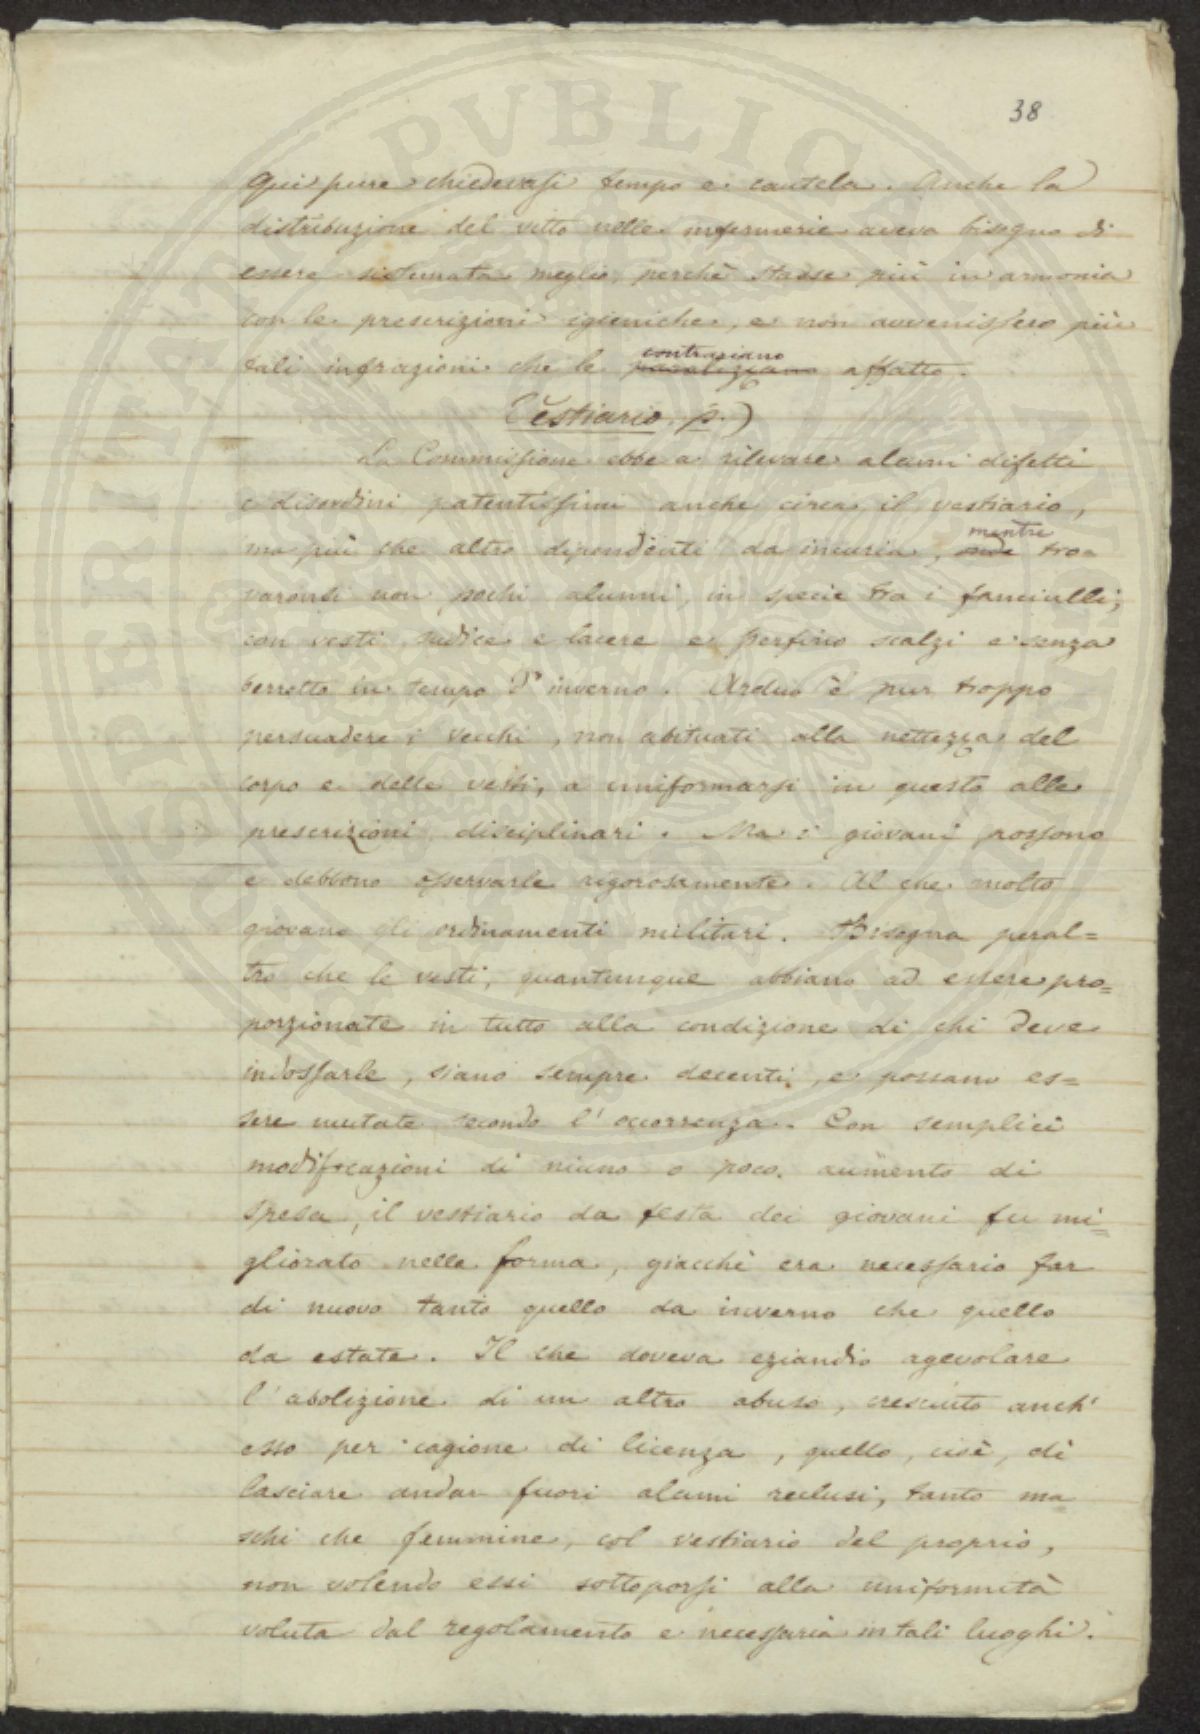 38
Qui pure chiedevasi tempo e cautela. Anche la
distribuzione del vitto nelle infermerie aveva bisogno di
essere sistemata meglio, perchè stasse più in armonia
con le prescrizioni igieniche, e non avvenissero più
tali infrazioni che le contrariano
paralizzano affatto.
(Vestiario. p.)
La Commissione ebbe a rilevare alcuni difetti
e disordini patentissimi anche circa il vestiario,
ma più che altro dipendenti da incuria, mentre
onde tro-
varonsi non pochi alunni, in specie tra i fanciulli,
con vesti sudice e lacere e perfino scalzi e senza
berretto in tempo d'inverno. Arduo è pur troppo
persuadere i vecchi, non abituati alla nettezza del
corpo e delle vesti, a uniformarsi in questo alle
prescrizioni disciplinari. Ma i giovani possono
e debbono osservarle rigorosamente. Al che molto
giovano gli ordinamenti militari. Bisogna peral=
tro che le vesti, quantunque abbiano ad essere pro=
porzionate in tutto alla condizione di chi deve
indossarle, siano sempre decenti, e possano es=
sere mutate secondo l'occorrenza. Con semplici
modificazioni di niuno o poco aumento di
spesa, il vestiario da festa dei giovani fu mi=
gliorato nella forma, giacchè era necessario far
di nuovo tanto quello da inverno che quello
da estate. Il che doveva eziandio agevolare
l'abolizione di un altro abuso, cresciuto anch'
esso per cagione di licenza, quello, cioè, di
lasciare andar fuori alcuni reclusi, tanto ma
schi che femmine, col vestiario del proprio,
non volendo essi sottoporsi alla uniformità
voluta dal regolamento e necessaria in tali luoghi.